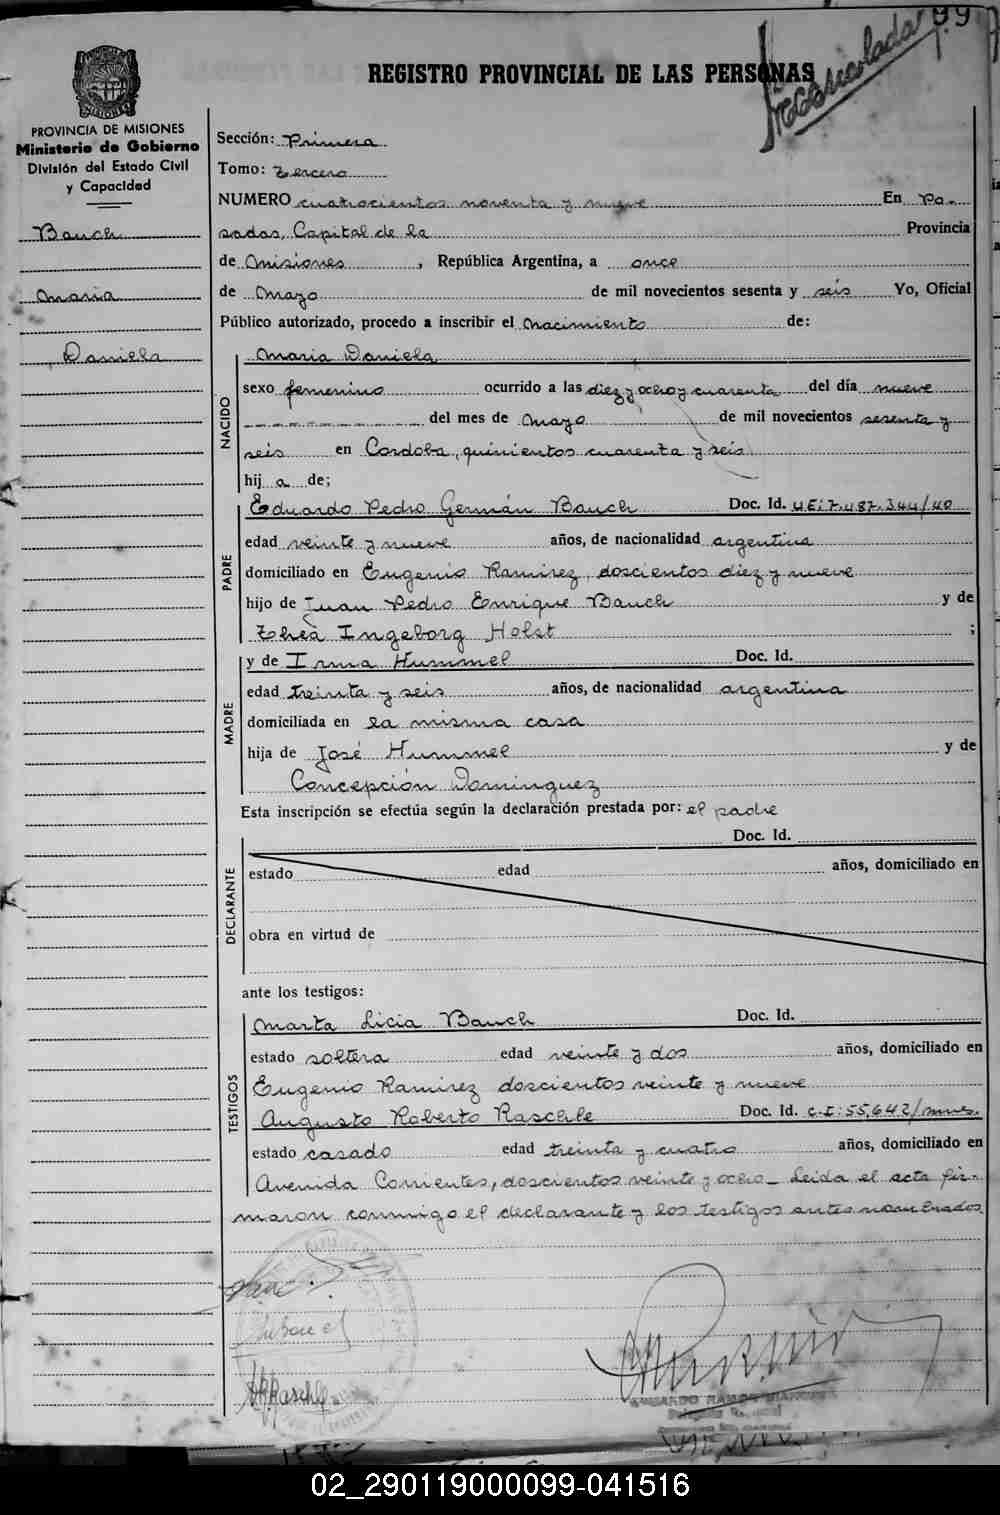 99
Reconciolada
REGISTRO PROVINCIAL DE LAS PERSONAS
PROVINCIA DE MISIONES
Ministerio de Gobierno
División del Estado Civil
y Capacidad
Bauch
Maria
Daniela
Sección: Primera
Tomo: Tercero
NUMERO cuatrocientos noventa y nueve En Po-
sadas, Capital de la Provincia
de Misiones, República Argentina, a once
de Mayo de mil novecientos sesenta y seis Yo, Oficial
Público autorizado, procedo a inscribir el nacimiento de:
NACIDO
Maria Daniela
sexo femenino ocurrido a las diez y ocho y cuarenta del día nueve
del mes de Mayo de mil novecientos sesenta y
seis en Cordoba, quinientos cuarenta y seis
hij a de;
PADRE
Eduardo Pedro Germán Bauch Doc. Id. 4E: 7.487.344/40
edad veinte y nueve años, de nacionalidad argentina
domiciliado en Eugenio Ramirez, doscientos diez y nueve
hijo de Juan Pedro Enrique Bauch y de
Thea Ingeborg Holst ;
MADRE
y de Irma Hummel Doc. Id.
edad treinta y seis años, de nacionalidad argentina
domiciliada en la misma casa
hija de José Hummel y de
Concepción Dominguez
Esta inscripción se efectúa según la declaración prestada por: el padre
DECLARANTE
Doc. Id.
estado edad años, domiciliado en
obra en virtud de
ante los testigos:
TESTIGOS
Marta Licia Bauch Doc. Id.
estado soltera edad veinte y dos años, domiciliado en
Eugenio Ramirez doscientos veinte y nueve
Augusto Roberto Raschle Doc. Id. C.I: 55.642/mnes.
estado casado edad treinta y cuatro años, domiciliado en
Avenida Corrientes, doscientos veinte y ocho_ Leida el acta fir-
maron conmigo el declarante y los testigos antes nombrados
ARRaschle
02_290119000099-041516